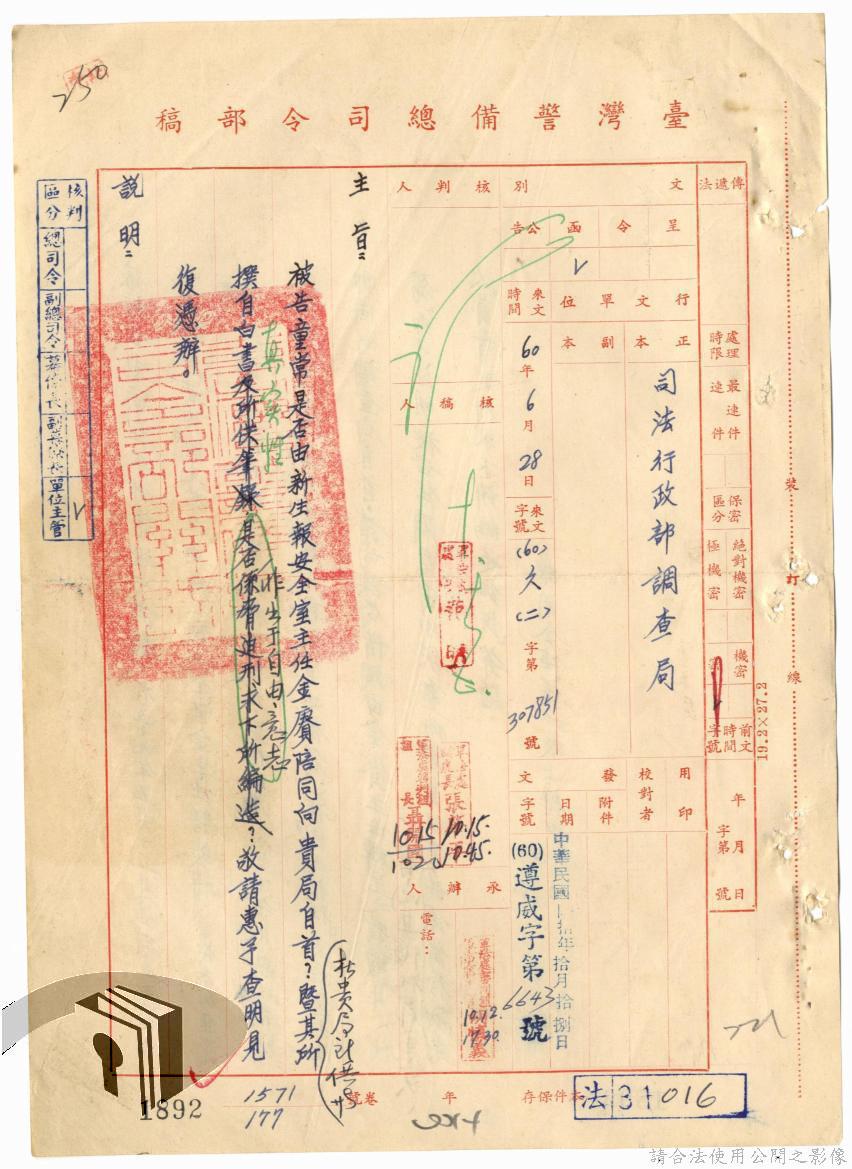 250
臺灣警備總司令部稿
傳遞法
處理時限
最速件
速件
保密區分
絕對機密
極機密
機密
密
前文時間字號
年月日
字第號
文別
呈
令
函
公告
行文單位
正本
副本
司法行政部調查局
來文時間
60年6月28日
來文字號
(60)久(二)字第307851號
用印
校對者
發文
附件
日期
中華民國陸拾年拾月拾捌日
字號
(60)遵威字第6643號
核判人
核稿人
10.15.
10.45.
10.15
承辦人
電話：
10.12.
17.30.
主旨：
被告童常是否由新生報安全室主任金賡陪同向貴局自首？暨其所
撰自白書及所供筆錄是否係脅迫刑求下所編造？敬請惠予查明見
復憑辦。
真實性
非出于自由意志
說明：
核判區分
總司令
副總司令
參謀長
副參謀長
單位主管
裝訂線
19.2×27.2
本件保存
年
卷號
1571
177
法31016
1892
請合法使用公開之影像